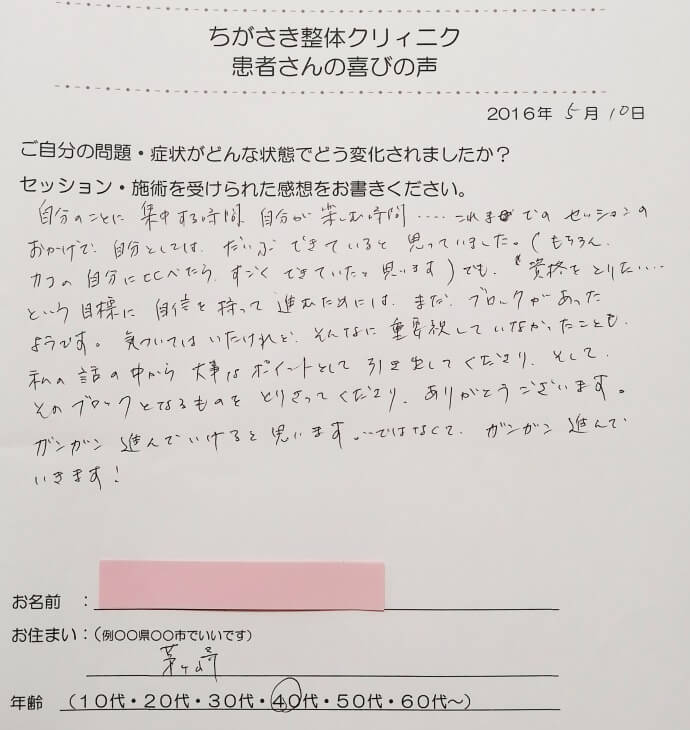 ちがさき整体クリィニク
患者さんの喜びの声
2016年 5月 10日
ご自分の問題・症状がどんな状態でどう変化されましたか？
セッション・施術を受けられた感想をお書きください。
自分のことに 集中する時間 自分が楽しむ時間……これまでのセッションの
おかげで、自分としては、だいぶ できていると 思っていました。（もちろん、
カコの自分にくらべたら、すごく できていたと思います）でも、“資格をとりたい…
という目標に 自信を持って 進むためには、まだ、ブロックがあった
ようです。気づいてはいたけれど、そんなに 重要視していなかったことも、
私の話の中から 大事なポイントとして 引き出してくださり、そして、
そのブロックとなるものを とりさってくださり、ありがとうございます。
ガンガン 進んでいけると思います。…ではなくて、ガンガン 進んで
いきます！
お名前 ：
お住まい：（例〇〇県〇〇市でいいです）
茅ヶ崎
年齢 （10代・20代・30代・40代・50代・60代～）